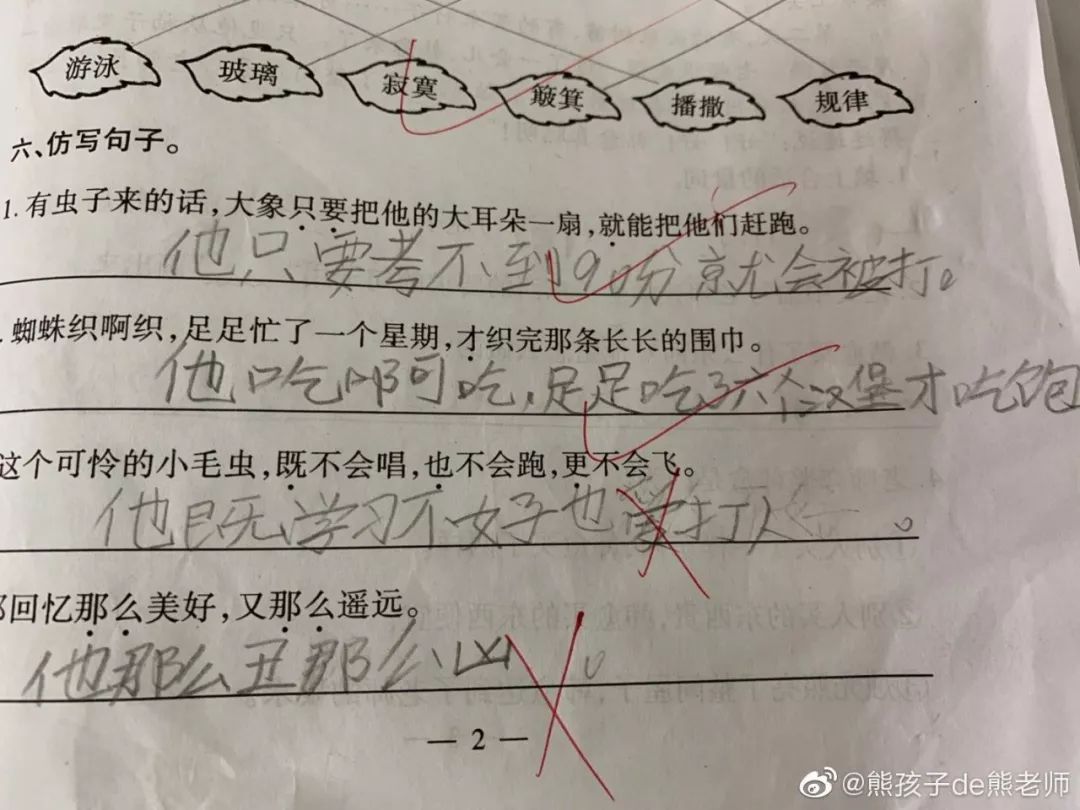 游泳 玻璃 寂寞 簸箕 播撒 规律
六、仿写句子。
1. 有虫子来的话，大象只要把他的大耳朵一扇，就能把他们赶跑。
他只要考不到90吩就会被打。
. 蜘蛛织啊织，足足忙了一个星期，才织完那条长长的围巾。
他吃啊吃，足足吃了六个汉堡才吃饱
这个可怜的小毛虫，既不会唱，也不会跑，更不会飞。
他既学习不好也爱打人。
回忆那么美好，又那么遥远。
他那么丑那么凶。
— 2 —
@熊孩子de熊老师